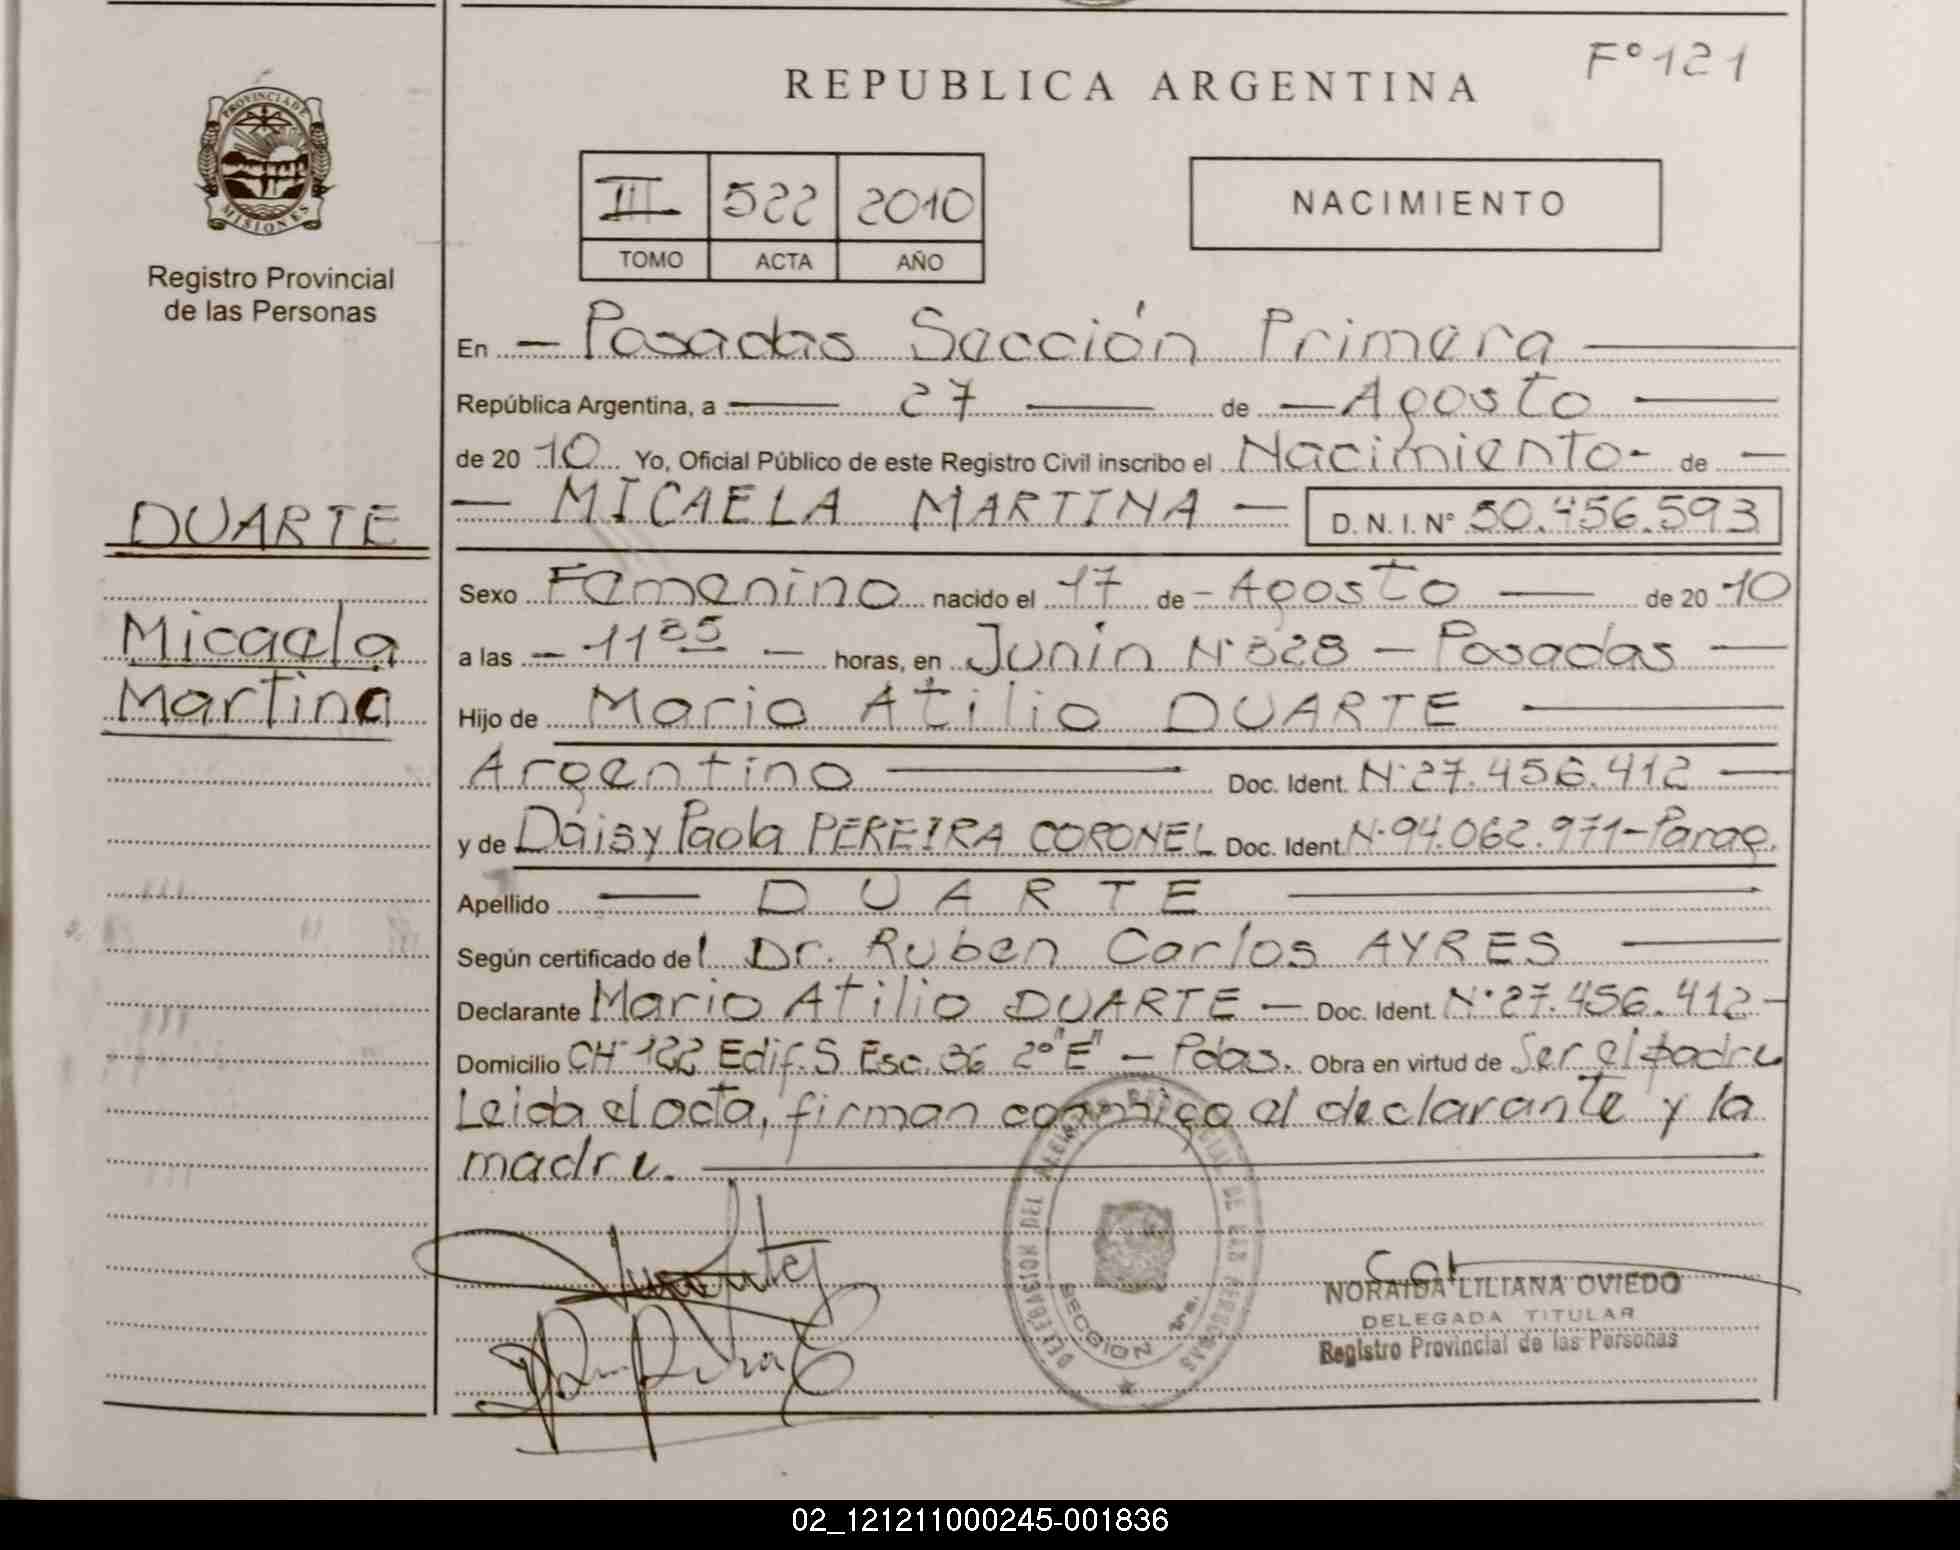 F° 121
REPUBLICA ARGENTINA
PROVINCIA DE
MISIONES
Registro Provincial
de las Personas
III 522 2010
TOMO ACTA AÑO
NACIMIENTO
En — Posadas Sección Primera —
República Argentina, a — 27 — de — Agosto —
de 20 10 Yo, Oficial Público de este Registro Civil inscribo el Nacimiento - de —
— MICAELA MARTINA — D. N. I. N° 50.456.593
DUARTE
Micaela
Martina
Sexo Femenino nacido el 17 de - Agosto — de 20 10
a las — 11 35 — horas, en Junin N° 328 — Posadas —
Hijo de Mario Atilio DUARTE —
Argentino — Doc. Ident. N° 27.456.412 —
y de Daisy Paola PEREIRA CORONEL Doc. Ident. N° 94.062.971 - Parag.
Apellido — D U A R T E —
Según certificado del Dr. Ruben Carlos AYRES —
Declarante Mario Atilio DUARTE — Doc. Ident. N° 27.456.412 -
Domicilio CH 122 Edif. 5 Esc. 36 2° "E" — Pdas. Obra en virtud de Ser el padre
Leida el acta, firman conmigo el declarante y la
madre. —
DELEGACION DEL REGISTRO PROVINCIAL DE LAS PERSONAS
SECCION 1ra.
NORAIDA LILIANA OVIEDO
DELEGADA TITULAR
Registro Provincial de las Personas
02_121211000245-001836